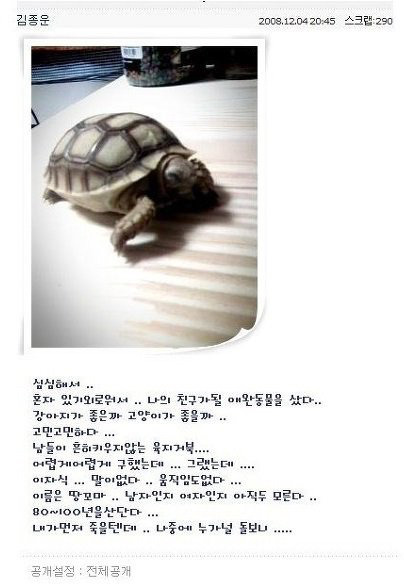 김종운 2008.12.04 20:45 스크랩:290
심심해서 ..
혼자 있기외로워서 .. 나의 친구가될 애완동물을 샀다..
강아지가 좋은까 고양이가 좋을까 ..
고민고민하다 ...
남들이 흔히키우지않는 육지거북....
어렵게어렵게 구했는데 ... 그랬는데 ....
이자식 ... 말이없다 .. 움직임도없다 ...
이름은 땅꼬마 .. 남자인지 여자인지 아직두 모른다 ..
80~100년을산단다 ...
내가먼저 죽을텐데 .. 나중에 누가널 돌보니 .....
공개설정 : 전체공개